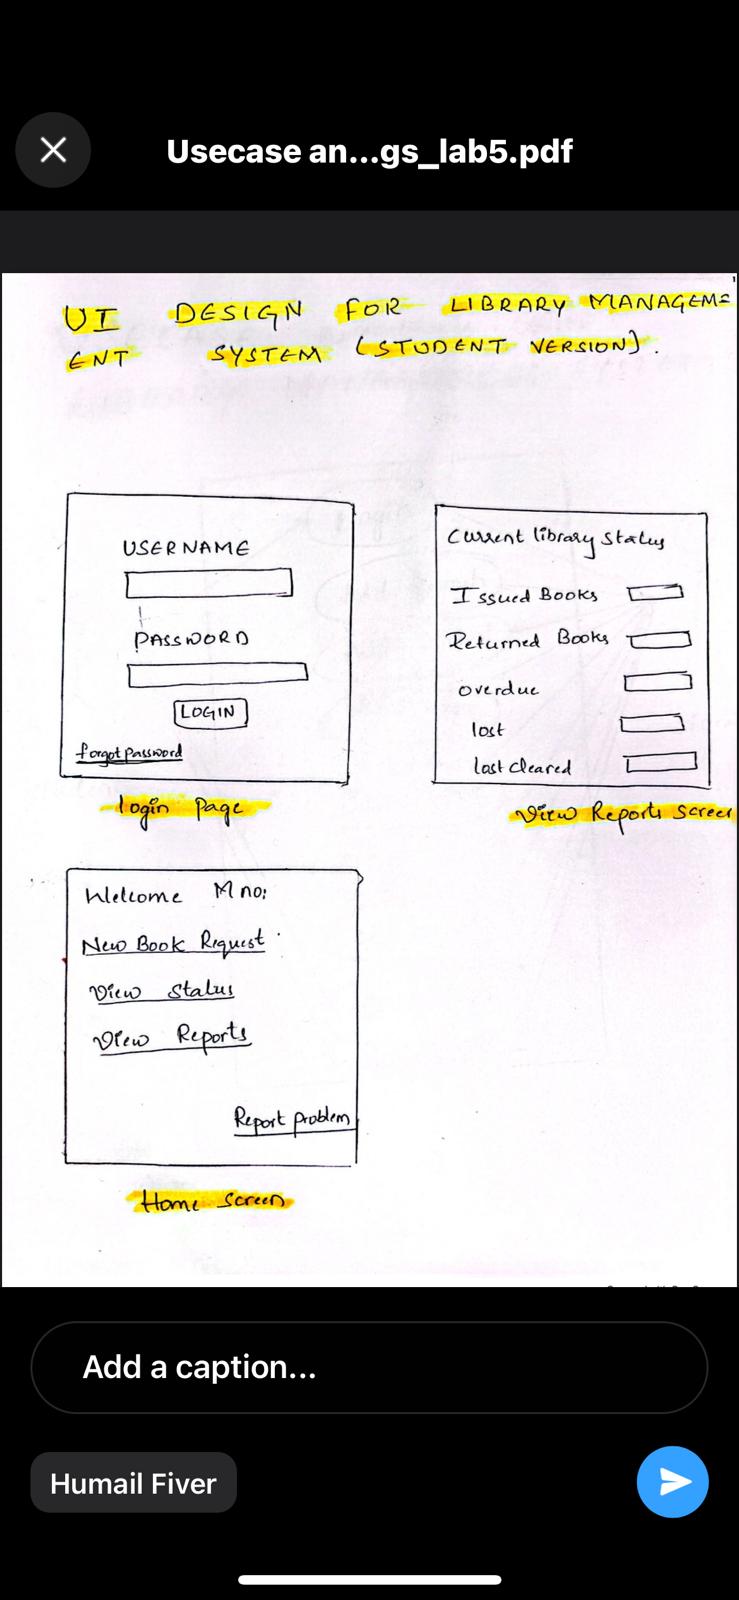 Usecase an...gs_lab5.pdf
UI DESIGN FOR LIBRARY MANAGEME
ENT SYSTEM (STUDENT VERSION).
USERNAME
PASSWORD
LOGIN
forgot password
login page
Current library status
Issued Books
Returned Books
overdue
lost
lost cleared
View Reports screen
Welcome M no:
New Book Request
View Status
View Reports
Report problem
Home Screen
Add a caption...
Humail Fiver